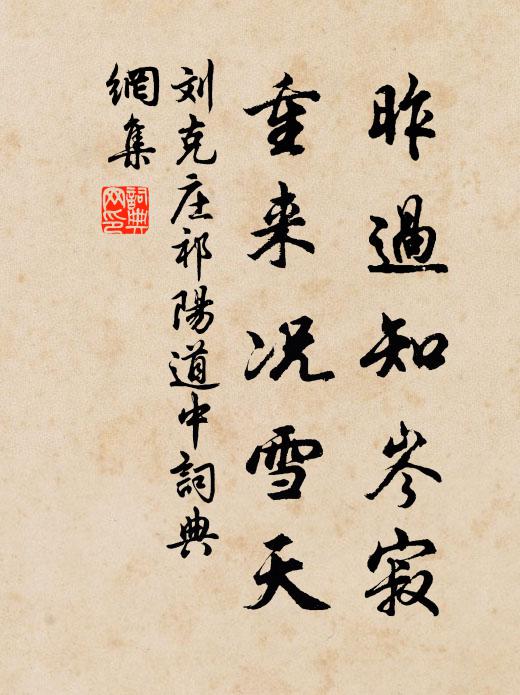 昨過知岑寂
重来况雪天
刘克庄祁陽道中詞典
網集
詞典
网印